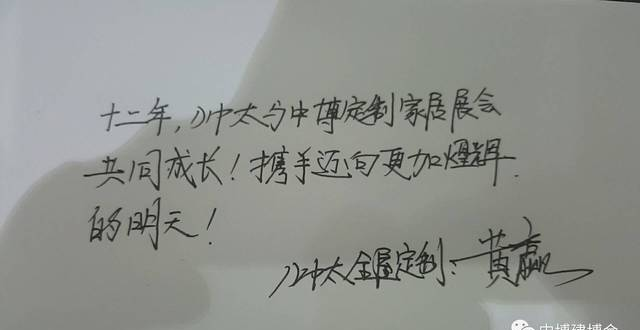 十二年,太与中博定制家居展会
共同成长!携手迈向更加辉
的明天!
太全屋定制:黄赢
中博建博会